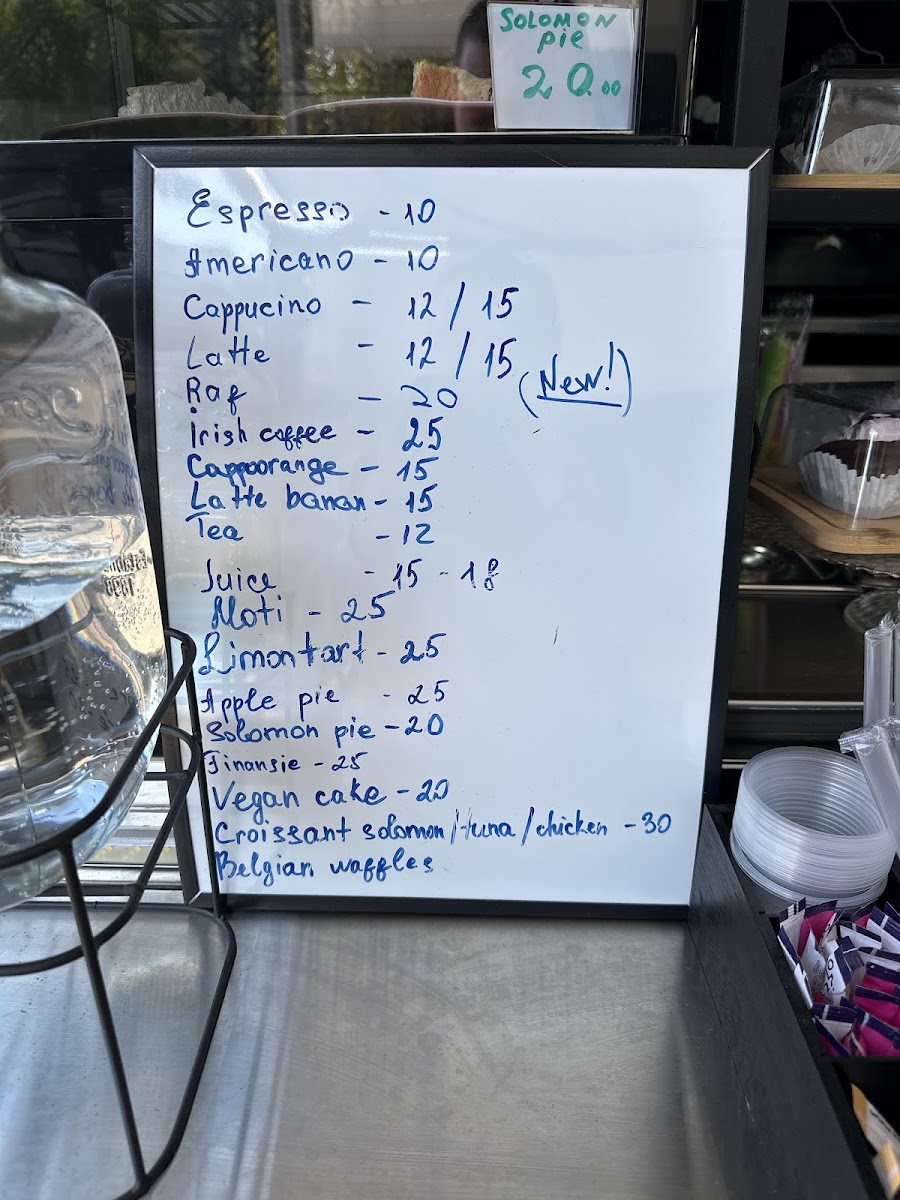 SOLOMON
pie
20.00
Espresso - 10
Americano - 10
Cappucino - 12 / 15
Latte - 12 / 15
Raf - 20 (New!)
Irish coffee - 25
Cappoorange - 15
Latte banan - 15
Tea - 12
Juice - 15 - 18
Moti - 25
Limontart - 25
Apple pie - 25
Solomon pie - 20
Finansie - 25
Vegan cake - 20
Croissant solomon/tuna/chicken - 30
Belgian waffles
1898